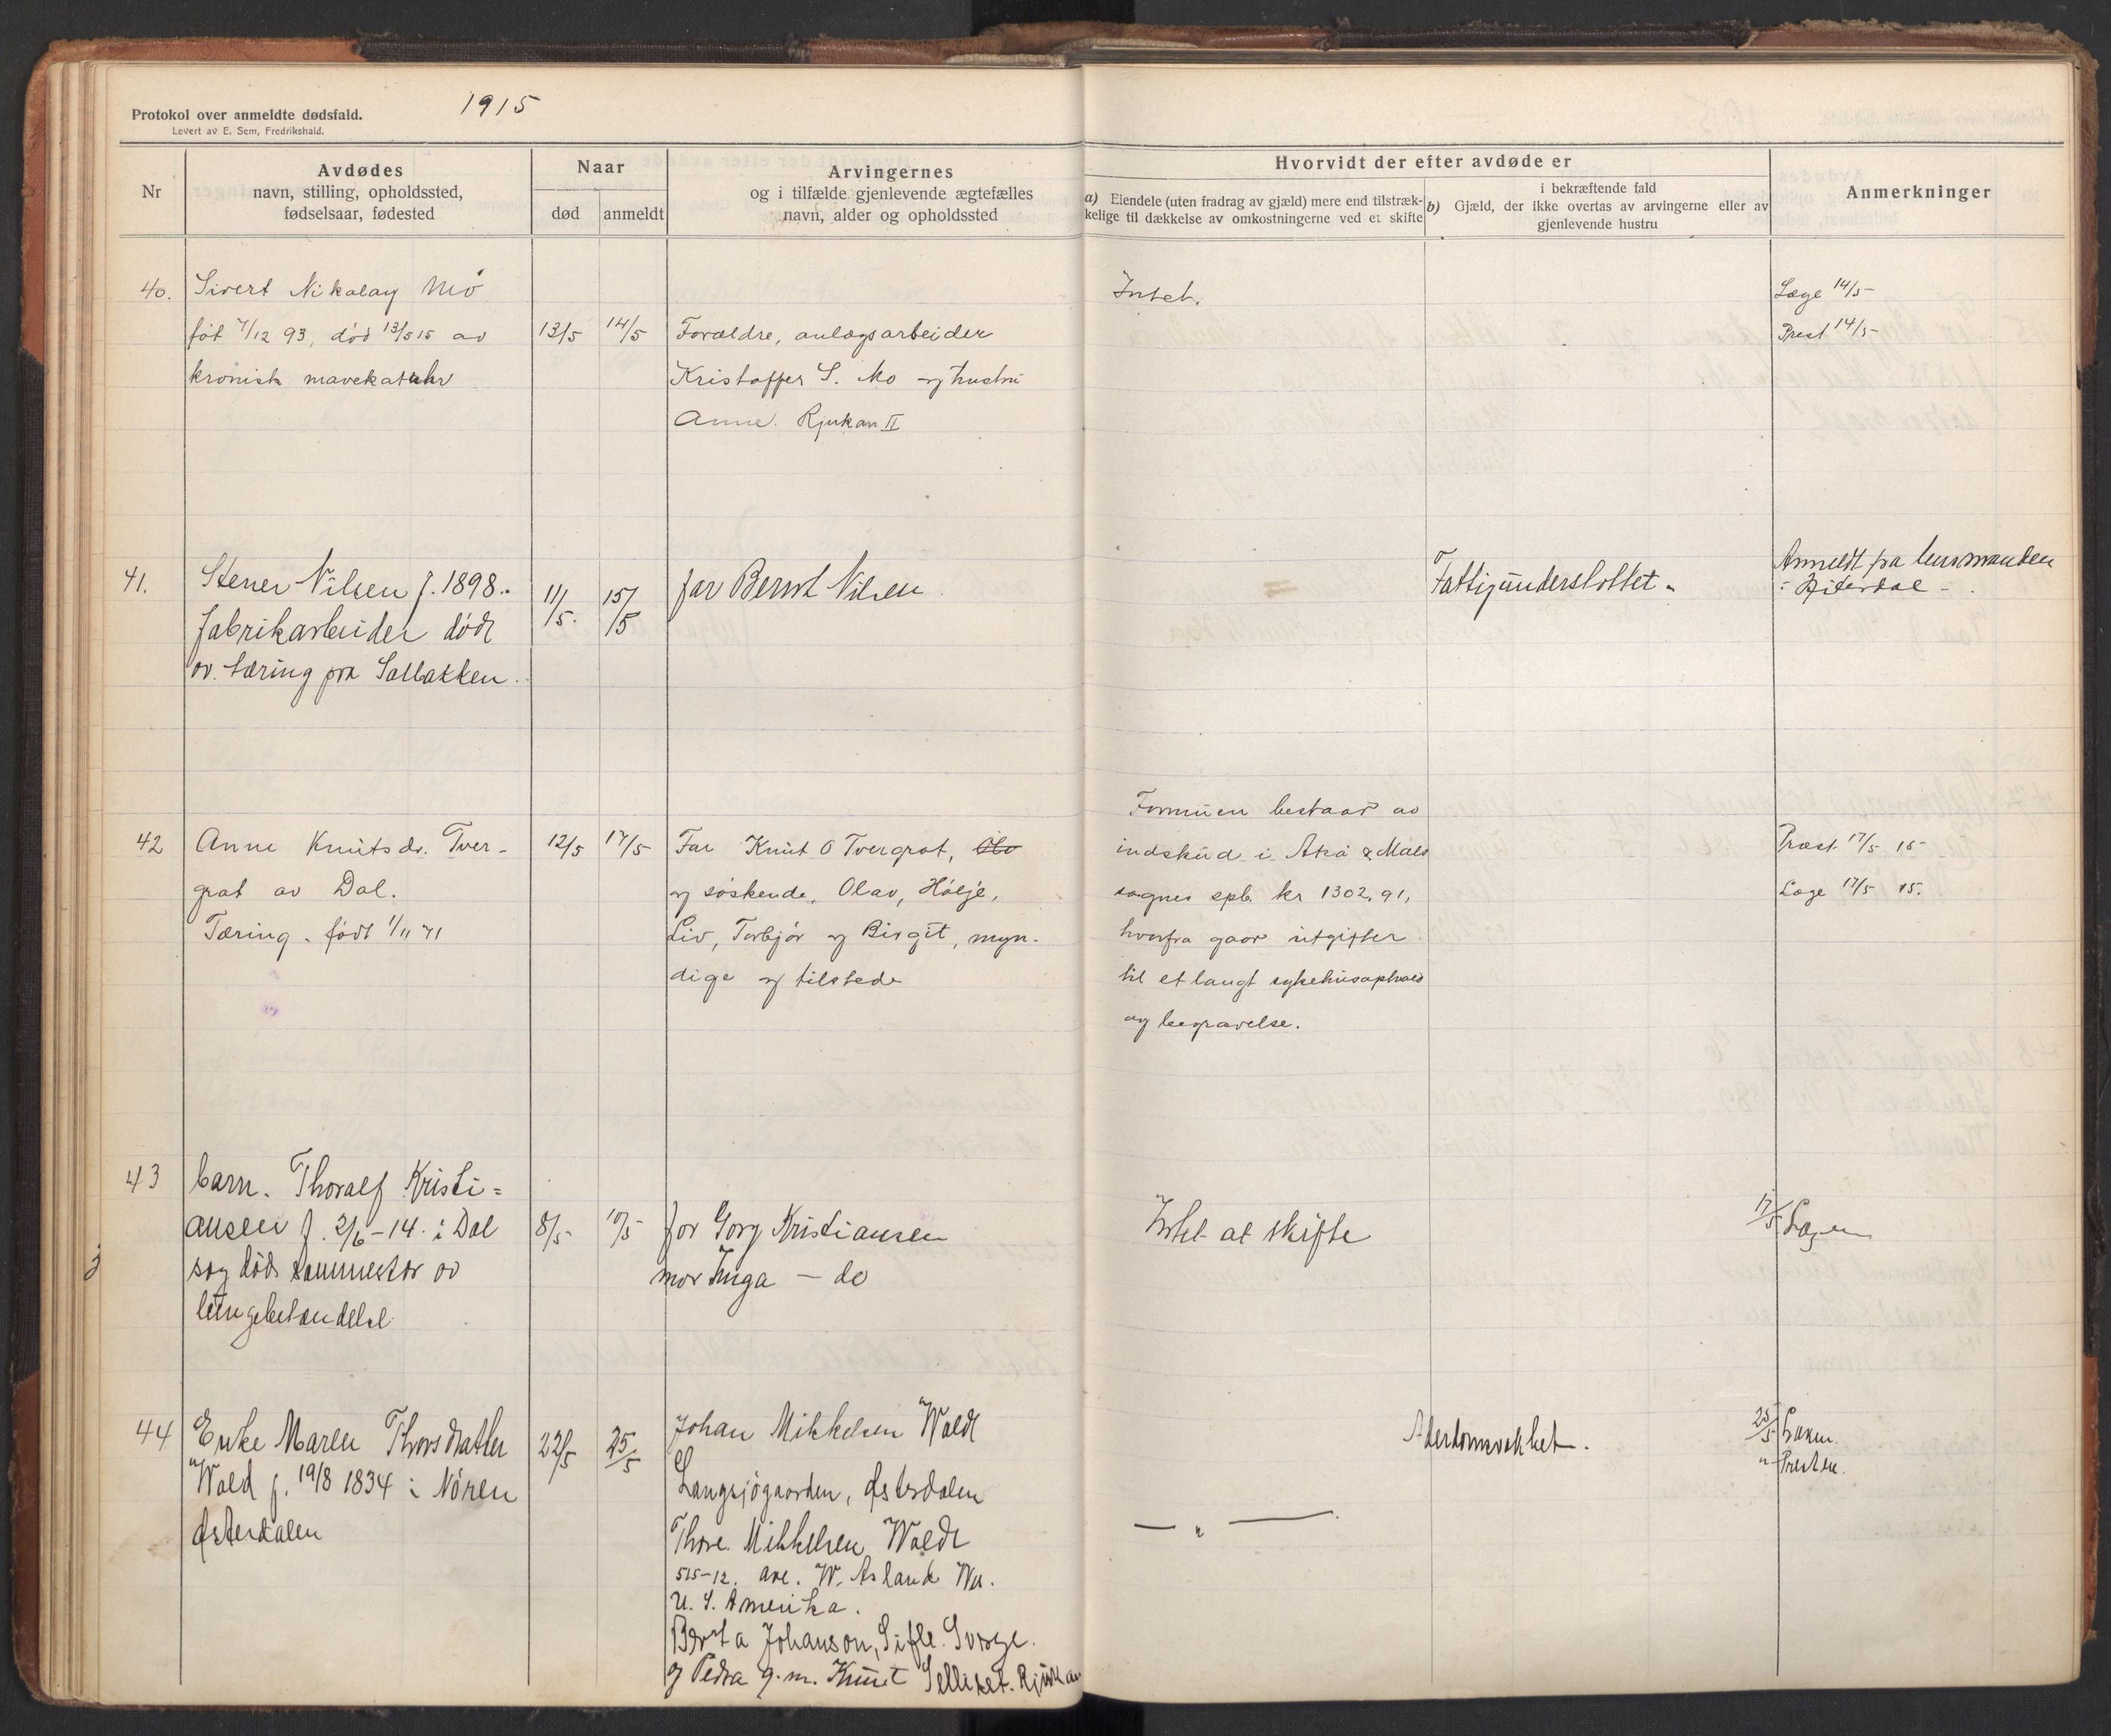 1915
Protokol over anmeldte dødsfald.
Levert av E. Sem, Fredrikshald.
Nr
Avdødes
navn, stilling, opholdssted,
fødselsaar, fødested
Naar
død
anmeldt
Arvingernes
og i tilfælde gjenlevende ægtefælles
navn, alder og opholdssted
Hvorvidt der efter avdøde er
a) Eiendele (uten fradrag av gjæld) mere end tilstræk-
kelige til dækkelse av omkostningerne ved et skifte
i bekræftende fald
b) Gjæld, der ikke overtas av arvingerne eller av
gjenlevende hustru
Anmerkninger
40.
Sivert Nikolay Mo
føt 7/12 93, død 13/5 15 av
kronisk mavekatahr
13/5
14/5
Forældre, anlægsarbeider
Kristoffer S. Mo og hustru
Anne. Rjukan II
Intet.
Læge 14/5
Prest 14/5
41.
Stener Nilsen f. 1898.
fabrikarbeider død
av tæring fra
11/5.
15/5
far Bernt Nilsen
Fattigunderstøttet.
Anmeldt fra lensmanden
i Hiterdal.
42
Anne Knutsdr. Tver-
grot av Dal.
Tæring. født 1/11 71
12/5
17/5
Far Knut O Tvergrot, Olv
og søskende, Olav, Hølje,
Liv, Torbjør og Birgit, myn-
dige og tilstede
Formuen bestaar av
indskud i Atrå & Mæls
sognes spb. kr 1302,91,
hvorfra gaar utgifter
til et langt sykehusophold
og begravelse.
Præst 17/5 15
Læge 17/5 15.
43
barn. Thoralf Kristi=
ansen f. 2/6-14. i Dal
sog død sammestør av
lungebetændelse
8/5
10/5
far Georg Kristiansen
mor Inga — do
Intet at skifte
17/5 Lægen
44
Enke Maren Thorsdatter
Wold f. 19/8 1834 i Nören
Østerdalen
22/5
25/5
Johan Mikkelsen Wold
Langsjøgaarden, Østerdalen
Thore Mikkelsen Wold
515-12. ave. W. Asland Wis.
U. S. Amerika.
Berta Johanson, Sifle. Sverge.
og Petra g.m. Knut Selliset. Rjukan
— " —
Alderdomsvakhet.
25/5 Lægen.
" Presten.